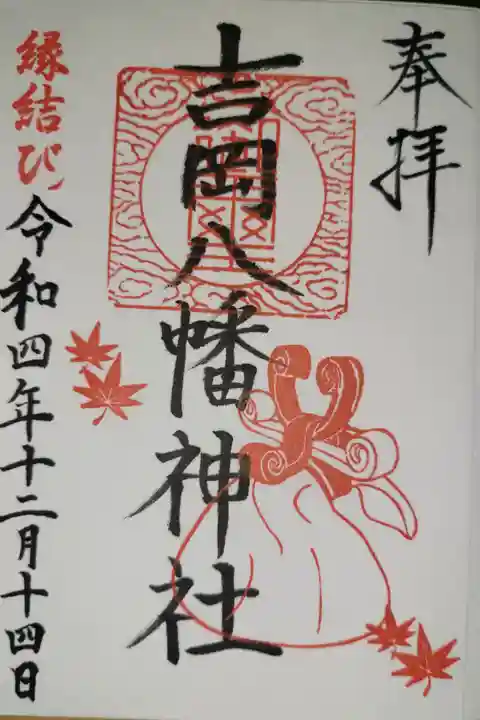 奉拝
吉岡八幡神社
縁結び
令和四年十二月十四日